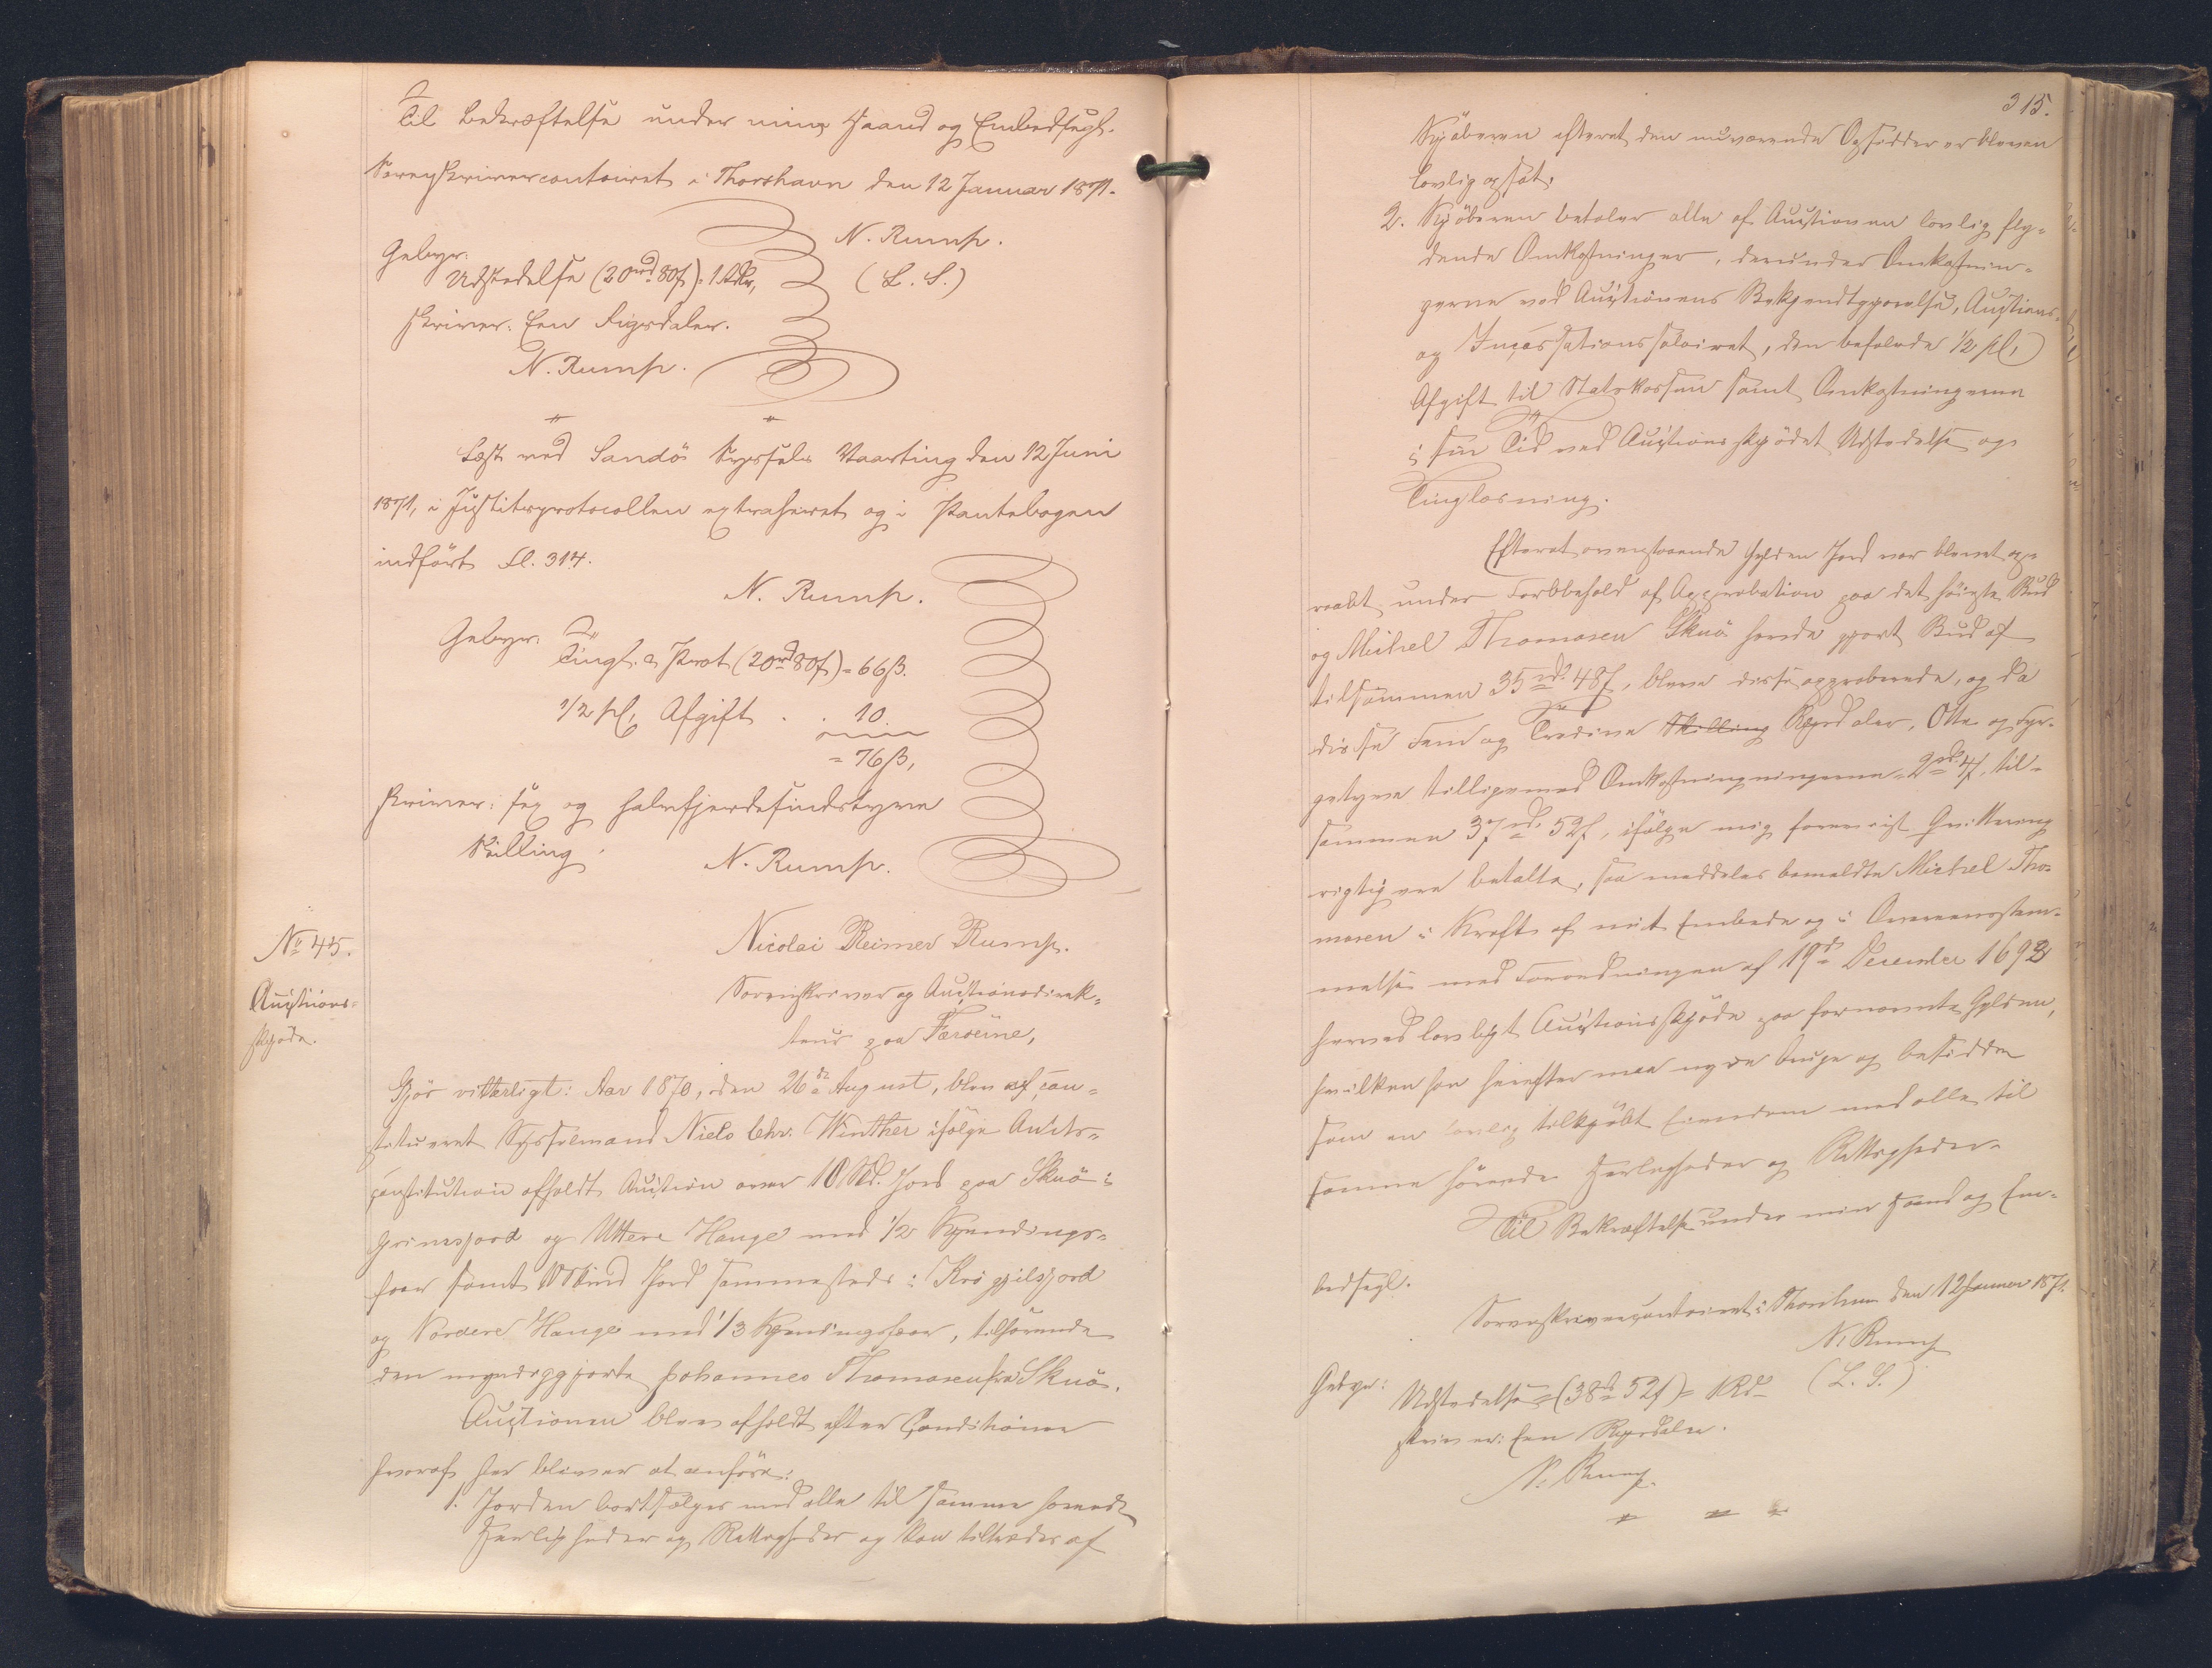 Til Bekræftelse under min Haand og Embedsegl.
Sorenskrivercontoiret i Thorshavn den 12 Januar 1871.
N. Rump.
(L. S.)
Gebyr:
Udstedelse (20rd 80f) = 1 Rdr,
skriver: Een Rigsdaler.
N. Rump.
Læst ved Sandö Syssels Vaarting den 12 Juni
1871, i Justitsprotocollen extraheret og i Pantebogen
indført Fl. 314.
N. Rump.
Gebyr:
Tingl. a Prot (20rd 80f) = 66ß.
1/2 pCt, Afgift . . 10.
= 76ß,
skriver: sex og halvfjerdesindstyve
Skilling.
N. Rump.
No 45.
Auctions-
skjøde.
Nicolai Reimer Rump.
Sorenskriver og Auctionsdirek-
teur paa Færøerne,
Gjør vitterligt: Aar 1870, den 26de August, blev af con-
stitueret Sysselmand Niels Chr. Winther ifølge Amts-
constitution afholdt Auction over 10 Skd. Jord paa Skuö i
Grimsjord og Uttere Hauge med 1/2 Kjendings-
faar samt 10 Skind Jord sammesteds i Krosgjilsjord
og Nordere Hauge med 1/3 Kjendingsfaar, tilhørende
den myndiggjorte Johannes Thomasen fra Skuö.
Auctionen blev afholdt efter Conditioner
hvoraf her bliver at anføre:
1. Jorden bortsælges med alle til samme hørende
Herligheder og Rettigheder og kan tiltrædes af
315.
Kjøberen efterat den nuværende Opsidder er bleven
lovlig opsat.
2. Kjøberen betaler alle af Auctionen lovlig fly-
dende Omkostninger, derunder Omkostnin-
gerne ved Auctionens Bekjendtgjørelse, Auctions-
og Incassationssalairet, den befalede 1/2 pCt,
Afgift til Statskassen samt Omkostningerne
i sin Tid ved Auctionsskjødets Udstedelse og
Tinglæsning.
Efterat ovenstaaende Gylden Jord var blevet op-
raabt under Forbehold af Approbation paa det høieste Bud
og Michel Thomasen Skuö havde gjort Bud af
tilsammen 35rd. 48f, bleve disse approberede, og da
disse Fem og Tredive Skilling Rigsdaler, Otte og Fyr-
getyve tilligemed Omkostningningerne = 2rd. 4f, til-
sammen 37rd. 52f, ifølge mig foreviist Qvittering
rigtig ere betalte, saa meddeles bemeldte Michel Tho-
masen i Kraft af mit Embede og i Overeensstem-
melse med Forordningen af 19de December 1693
herved lovligt Auctionsskjøde paa fornævnte Gylden,
hvilken han herefter maa nyde bruge og besidde
som en lovlig tilkjøbt Eiendom med alle til
samme hørende Herligheder og Rettigheder.
Til Bekræftelse under min Haand og Em-
bedsegl.
Sorenskrivercontoiret i Thorshavn den 12 Januar 1871.
N. Rump
(L. S.)
Gebyr:
Udstedelse = (38rd 52f) = 1 Rd
skriver: Een Rigsdaler.
N. Rump.